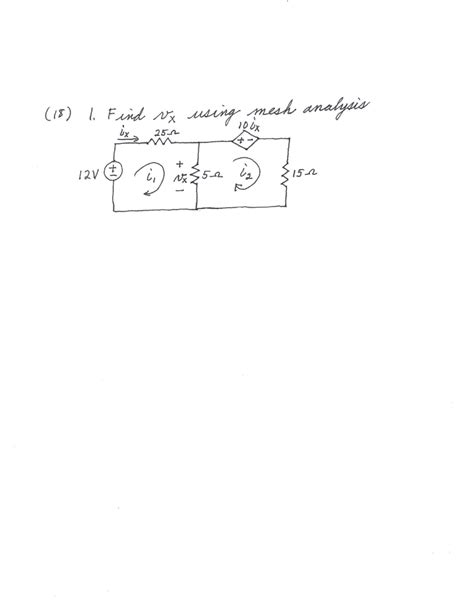 (18) 1. Find vx using mesh analysis
ix 25Ω 10ix
+ -
12V + - i1 + vx - 5Ω i2 15Ω